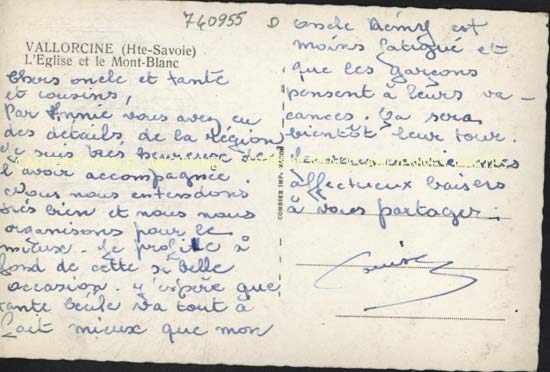 740955 D
VALLORCINE (Hte-Savoie)
L'Eglise et le Mont-Blanc
Chers oncle et tante
et cousins,
Par Annie vous avez eu
des détails de la région
Je suis très heureuse de
l'avoir accompagnée.
Nous nous entendons
très bien et nous nous
organisons pour le
mieux. Je profite à
fond de cette si belle
occasion. J'espère que
tante Cécile va tout à
fait mieux que mon
COMBIER IMP. MACON
oncle Rémy est
moins fatigué et
que les garçons
pensent à leurs va-
cances. Ça sera
bientôt leur tour.
mes
affectueux baisers
à vous partager.
Louise